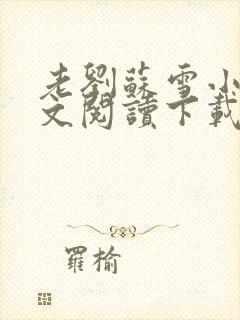 老劉蘇雪小
文閱讀下載
羅榆